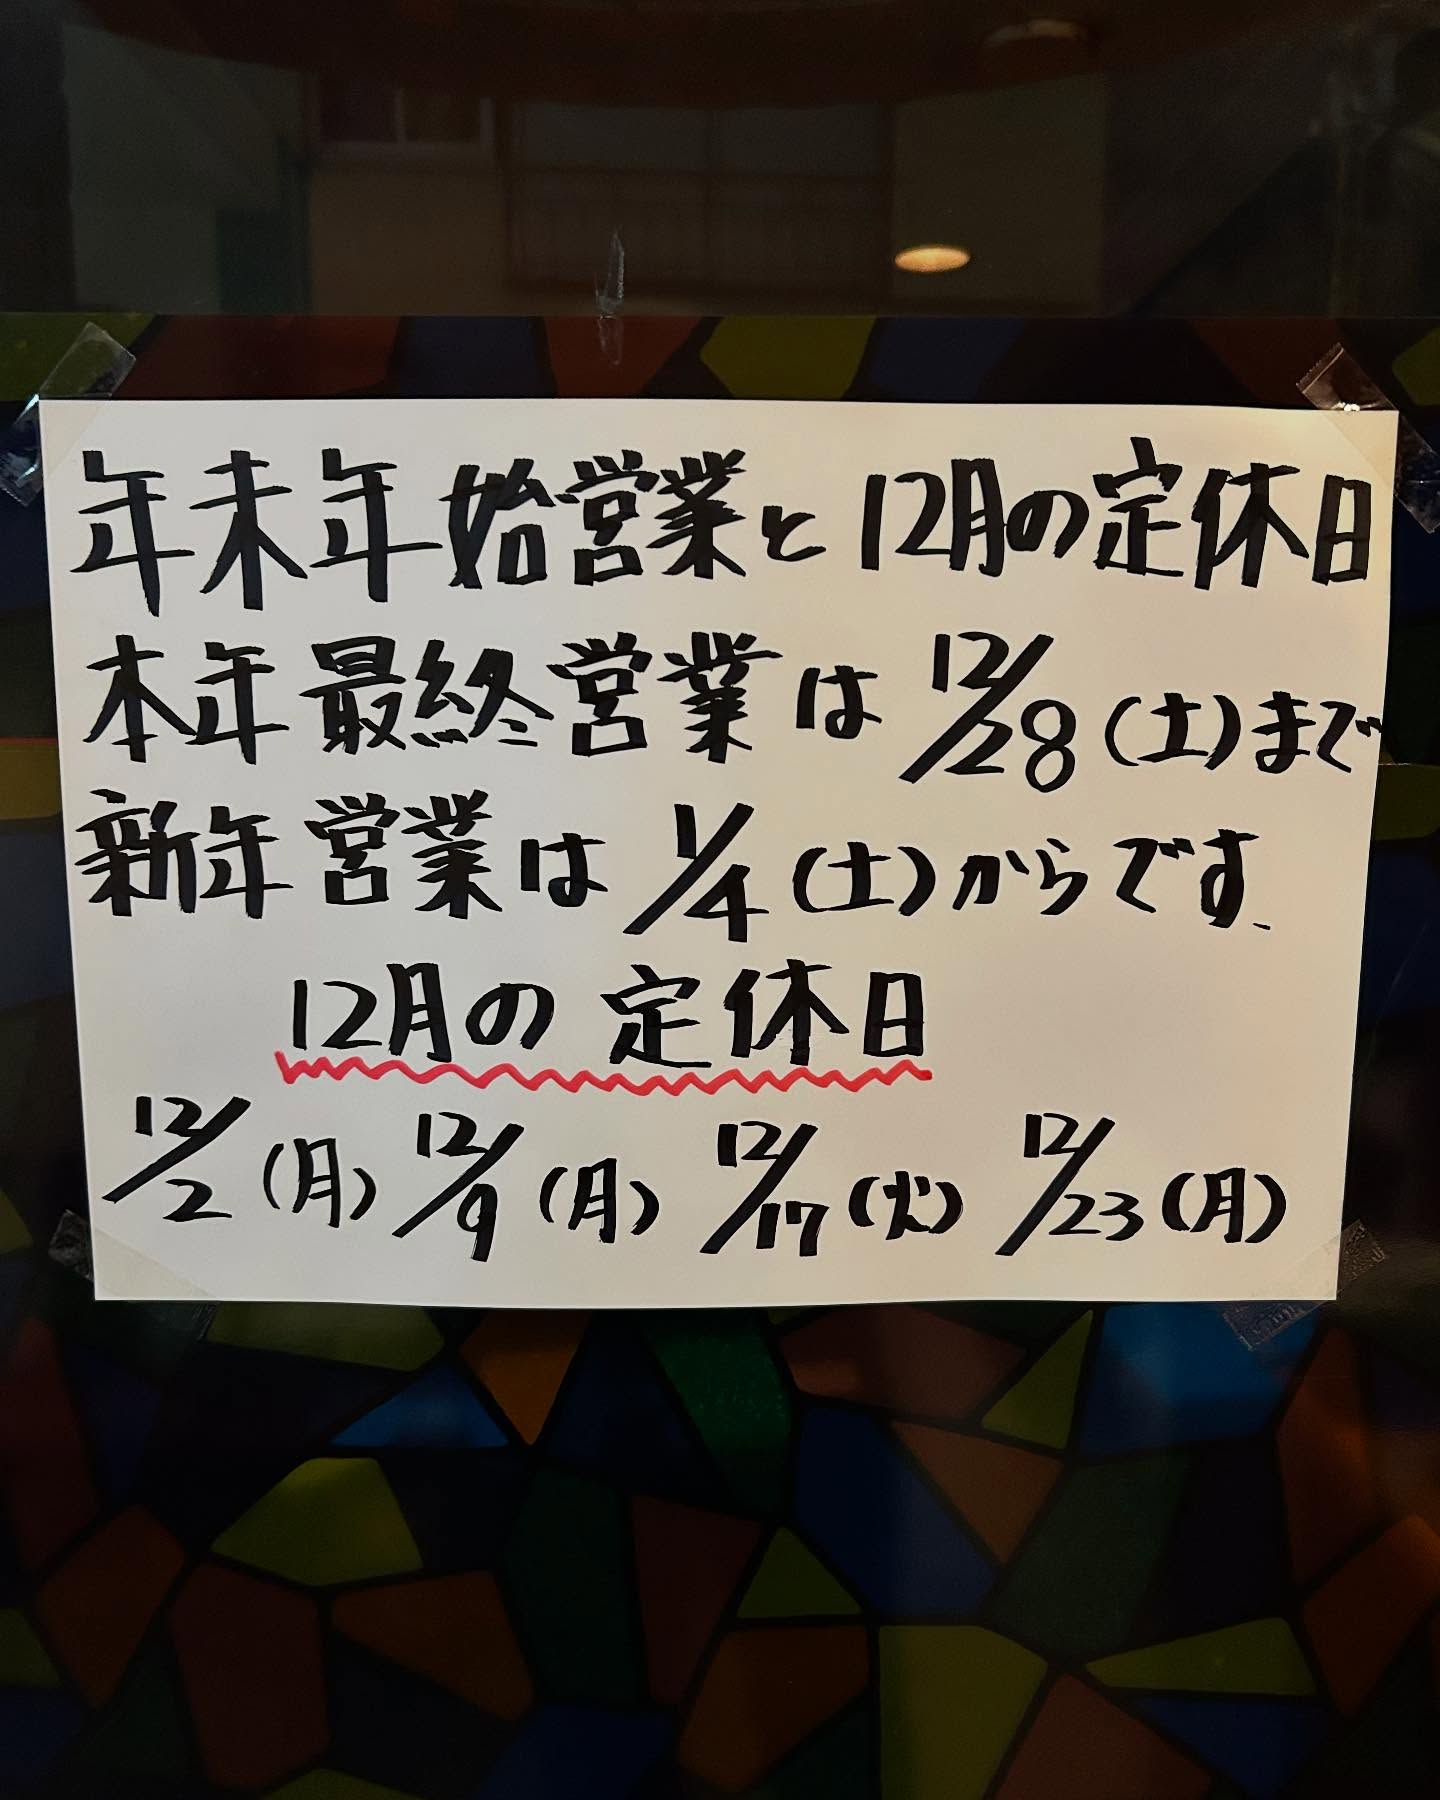 年末年始営業と12月の定休日
本年最終営業は12/28(土)まで
新年営業は1/4(土)からです、
12月の定休日
12/2(月) 12/9(月) 12/17(火) 12/23(月)